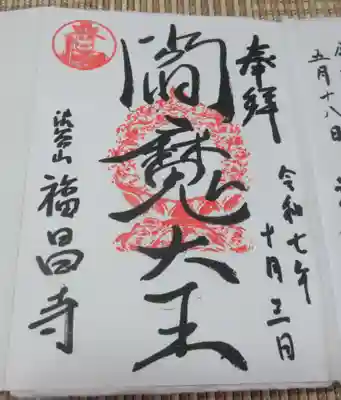 五月十八日
奉拝
令和七年
十月三日
閻魔大王
福昌寺